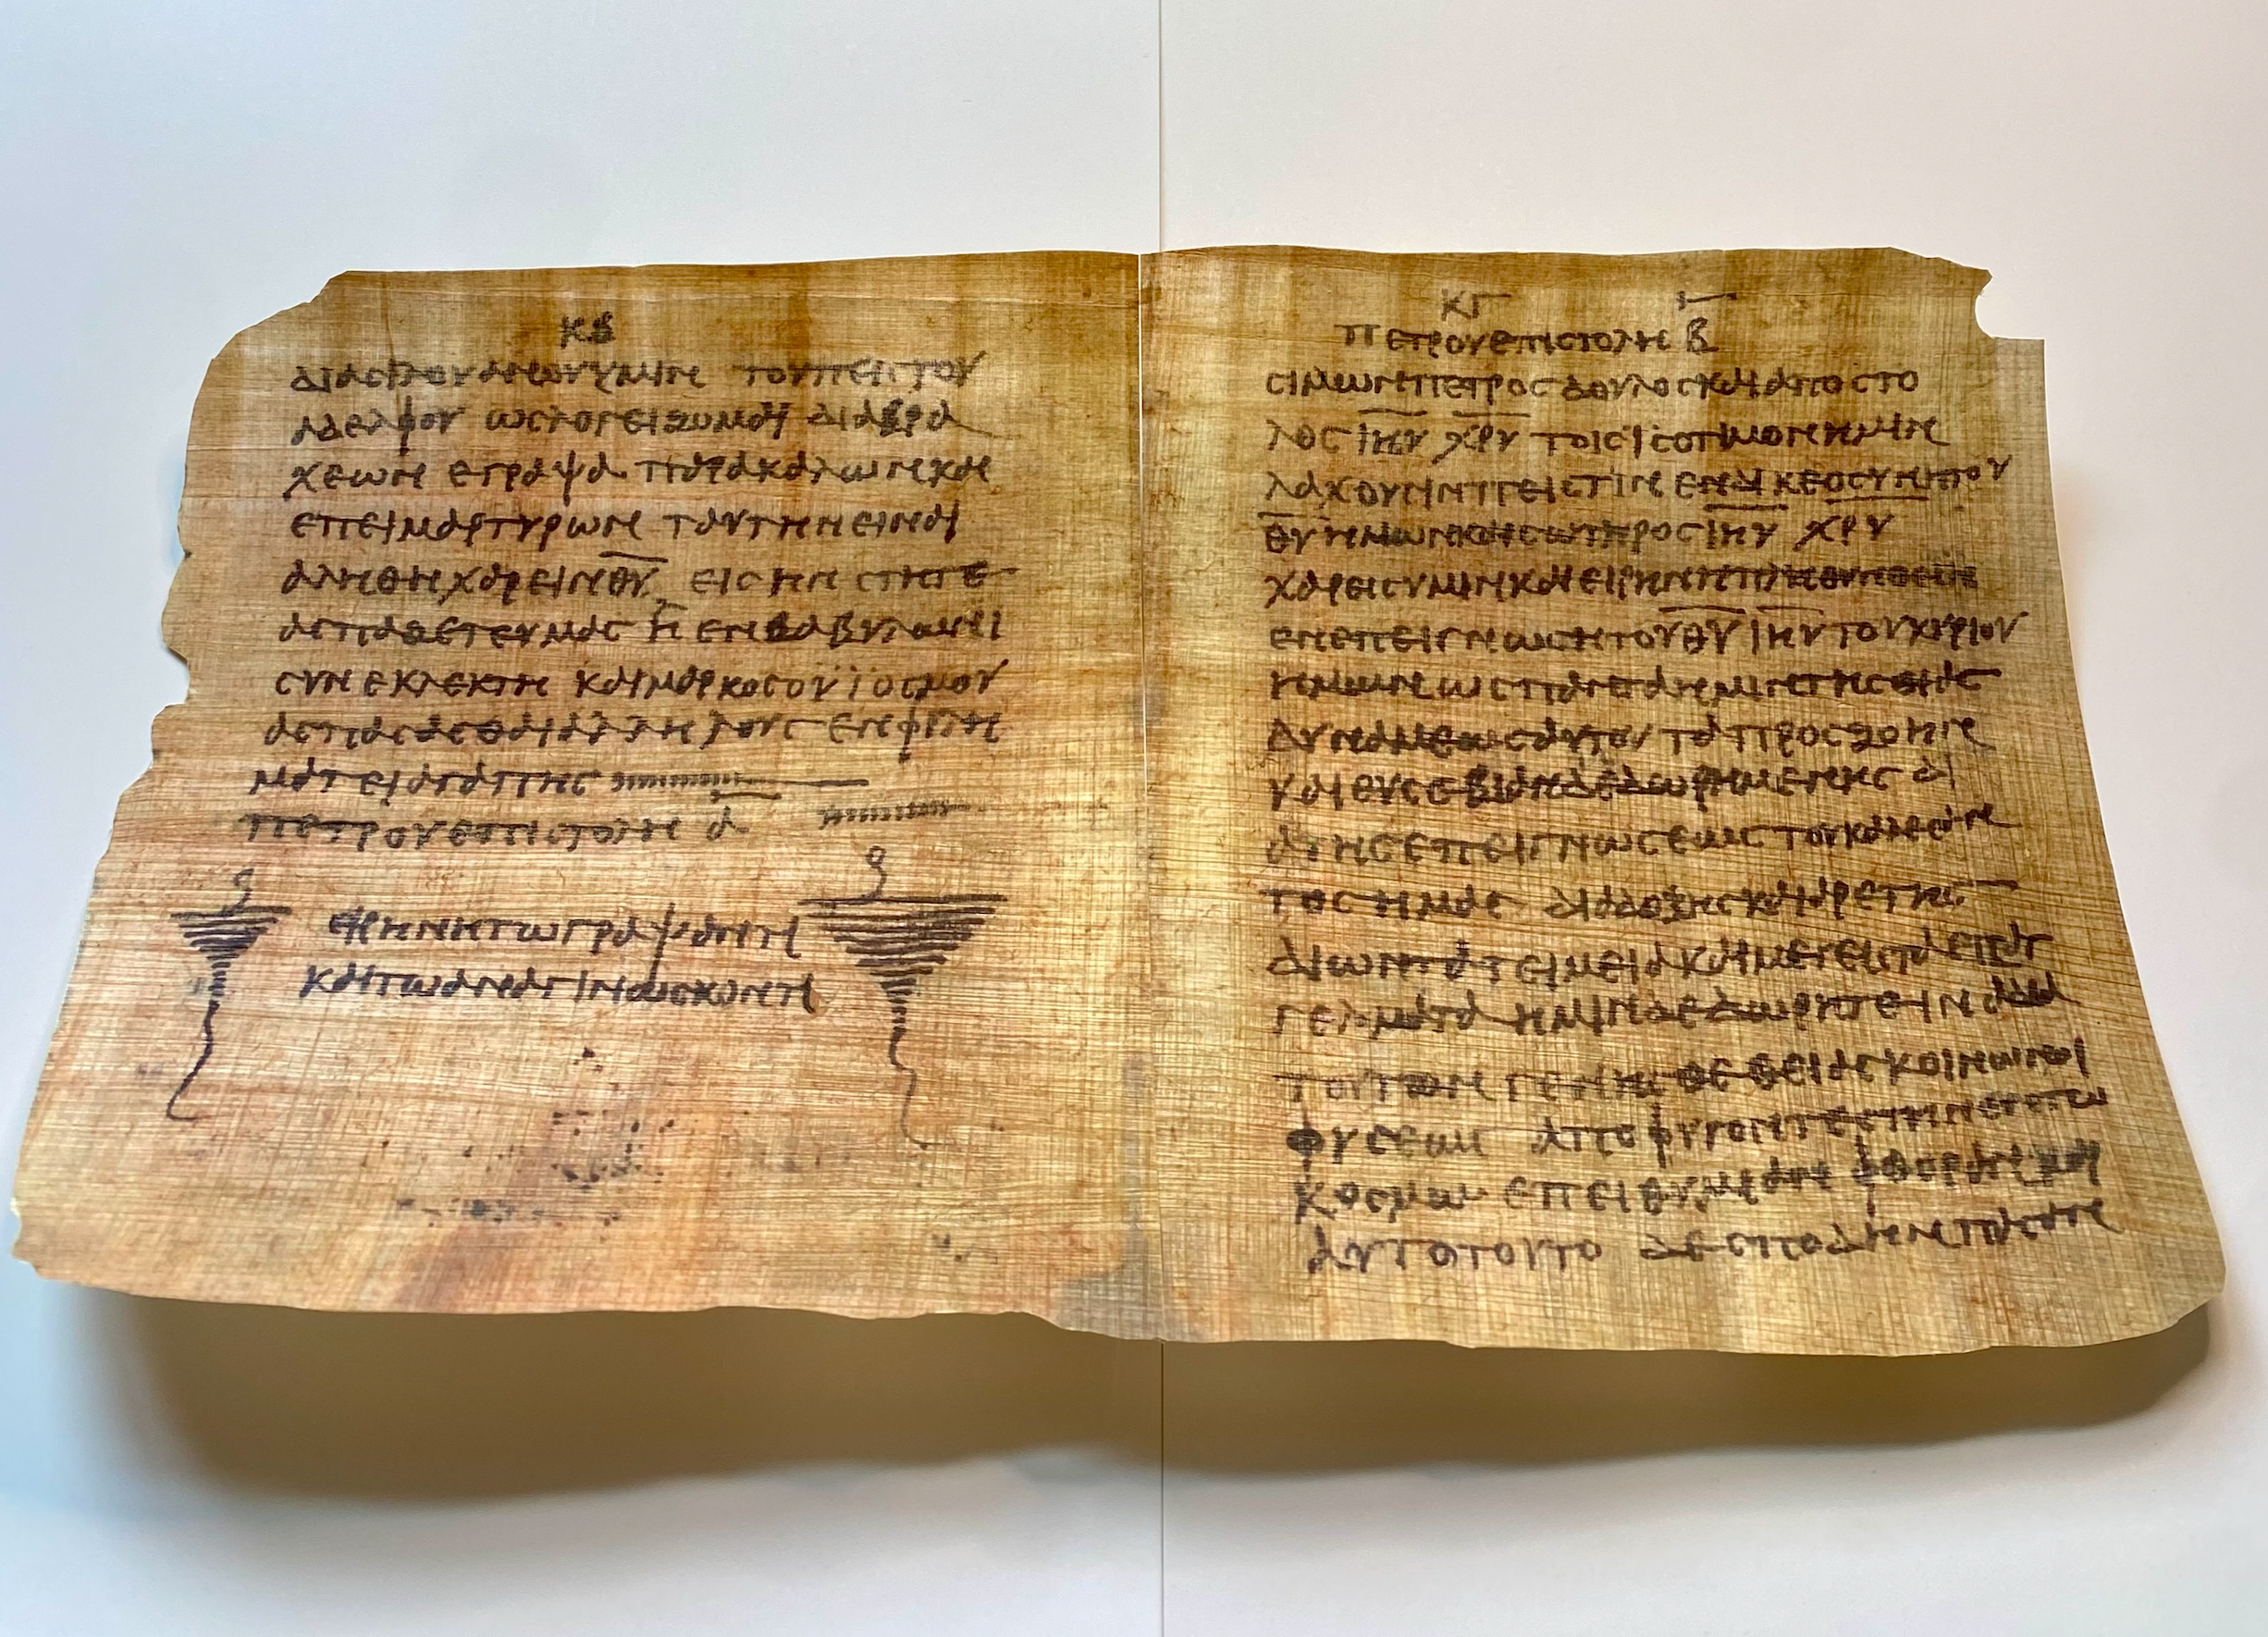 ΚΒ
ΔΙΑϹΙΛΟΥΑΝΟΥΥΜΙΝ ΤΟΥΠΕΙϹΤΟΥ
ΑΔΕΛΦΟΥ ΩϹΛΟΓΕΙΖΟΜΑΙ ΔΙΑΒΡΑ
ΧΕΩΝ ΕΓΡΑΨΑ ΠΑΡΑΚΑΛΩΝΚΑΙ
ΕΠΕΙΜΑΡΤΥΡΩΝ ΤΑΥΤΗΝΕΙΝΑΙ
ΑΛΗΘΗΧΑΡΕΙΝΘ̅Υ̅ ΕΙϹΗΝ ϹΤΗΤΕ
ΑϹΠΑΖΕΤΕΥΜΑϹ Η ΕΝΒΑΒΥΛΩΝΙ
ϹΥΝΕΚΛΕΚΤΗ ΚΑΙΜΑΡΚΟϹΟΥΪΟϹΜΟΥ
ΑϹΠΑϹΑϹΘΑΙΑΛΛΗΛΟΥϹ ΕΝΦΙΛΗ
ΜΑΤΕΙΑΓΑΠΗϹ
ΠΕΤΡΟΥΕΠΙϹΤΟΛΗ Α̅
ΕΙΡΗΝΗΤΩΓΡΑΨΑΝΤΙ
ΚΑΙΤΩΑΝΑΓΙΝΩϹΚΟΝΤΙ
ΚΓ
ΠΕΤΡΟΥΕΠΙϹΤΟΛΗ Β̅
ϹΙΜΩΝΠΕΤΡΟϹΔΟΥΛΟϹΚΑΙΑΠΟϹΤΟ
ΛΟϹ Ι̅Η̅Υ̅ Χ̅Ρ̅Υ̅ ΤΟΙϹΙϹΟΤΙΜΟΝΗΜΙΝ
ΛΑΧΟΥϹΙΝΠΕΙϹΤΙΝ ΕΝΔΙΚΕΟϹΥΝΗΤΟΥ
Θ̅Υ̅ΗΜΩΝΚΑΙϹΩΤΗΡΟϹ Ι̅Η̅Υ̅ Χ̅Ρ̅Υ̅
ΧΑΡΕΙϹΥΜΙΝΚΑΙΕΙΡΗΝΗΠΛΗΘΥΝΘΕΙΗ
ΕΝΕΠΕΙΓΝΩϹΗΤΟΥΘ̅Υ̅ Ι̅Η̅Υ̅ΤΟΥΚΥΡΙΟΥ
ΗΜΩΝ ΩϹΠΑΝΤΑΗΜΙΝΤΗϹΘΙΑϹ
ΔΥΝΑΜΕΩϹΑΥΤΟΥ ΤΑΠΡΟϹΖΟΗΝ
ΚΑΙΘΥϹΕΒΙΑΝΔΕΔΩΡΗΜΕΝΗϹ ΔΙ
ΑΤΗϹΕΠΕΙΓΝΩϹΕΩϹ ΤΟΥΚΑΛΕϹΑΝ
ΤΟϹΗΜΑϹ ΔΙΑΔΟΞΗϹΚΑΙΑΡΕΤΗϹ
ΔΙΩΝΤΑΤΕΙΜΕΙΑΚΑΙΜΕΓΕΙϹΤΑΕΠΑΓ
ΓΕΛΜΑΤΑ ΗΜΙΝΔΕΔΩΡΗΤΕ ΙΝΑΔΙΑ
ΤΟΥΤΩΝ ΓΕΝΗϹΘΕ ΘΕΙΑϹΚΟΙΝΩΝΟΙ
ΦΥϹΕΩϹ ΑΠΟΦΥΓΟΝΤΕϹΤΗΝΕΝΤΩ
ΚΟϹΜΩ ΕΠΕΙΘΥΜΕΙΑΝ ΦΘΟΡΑΝΚΑΙ
ΑΥΤΟΤΟΥΤΟ ΔΕϹΠΟΔΗΝΠΑϹΑΝ